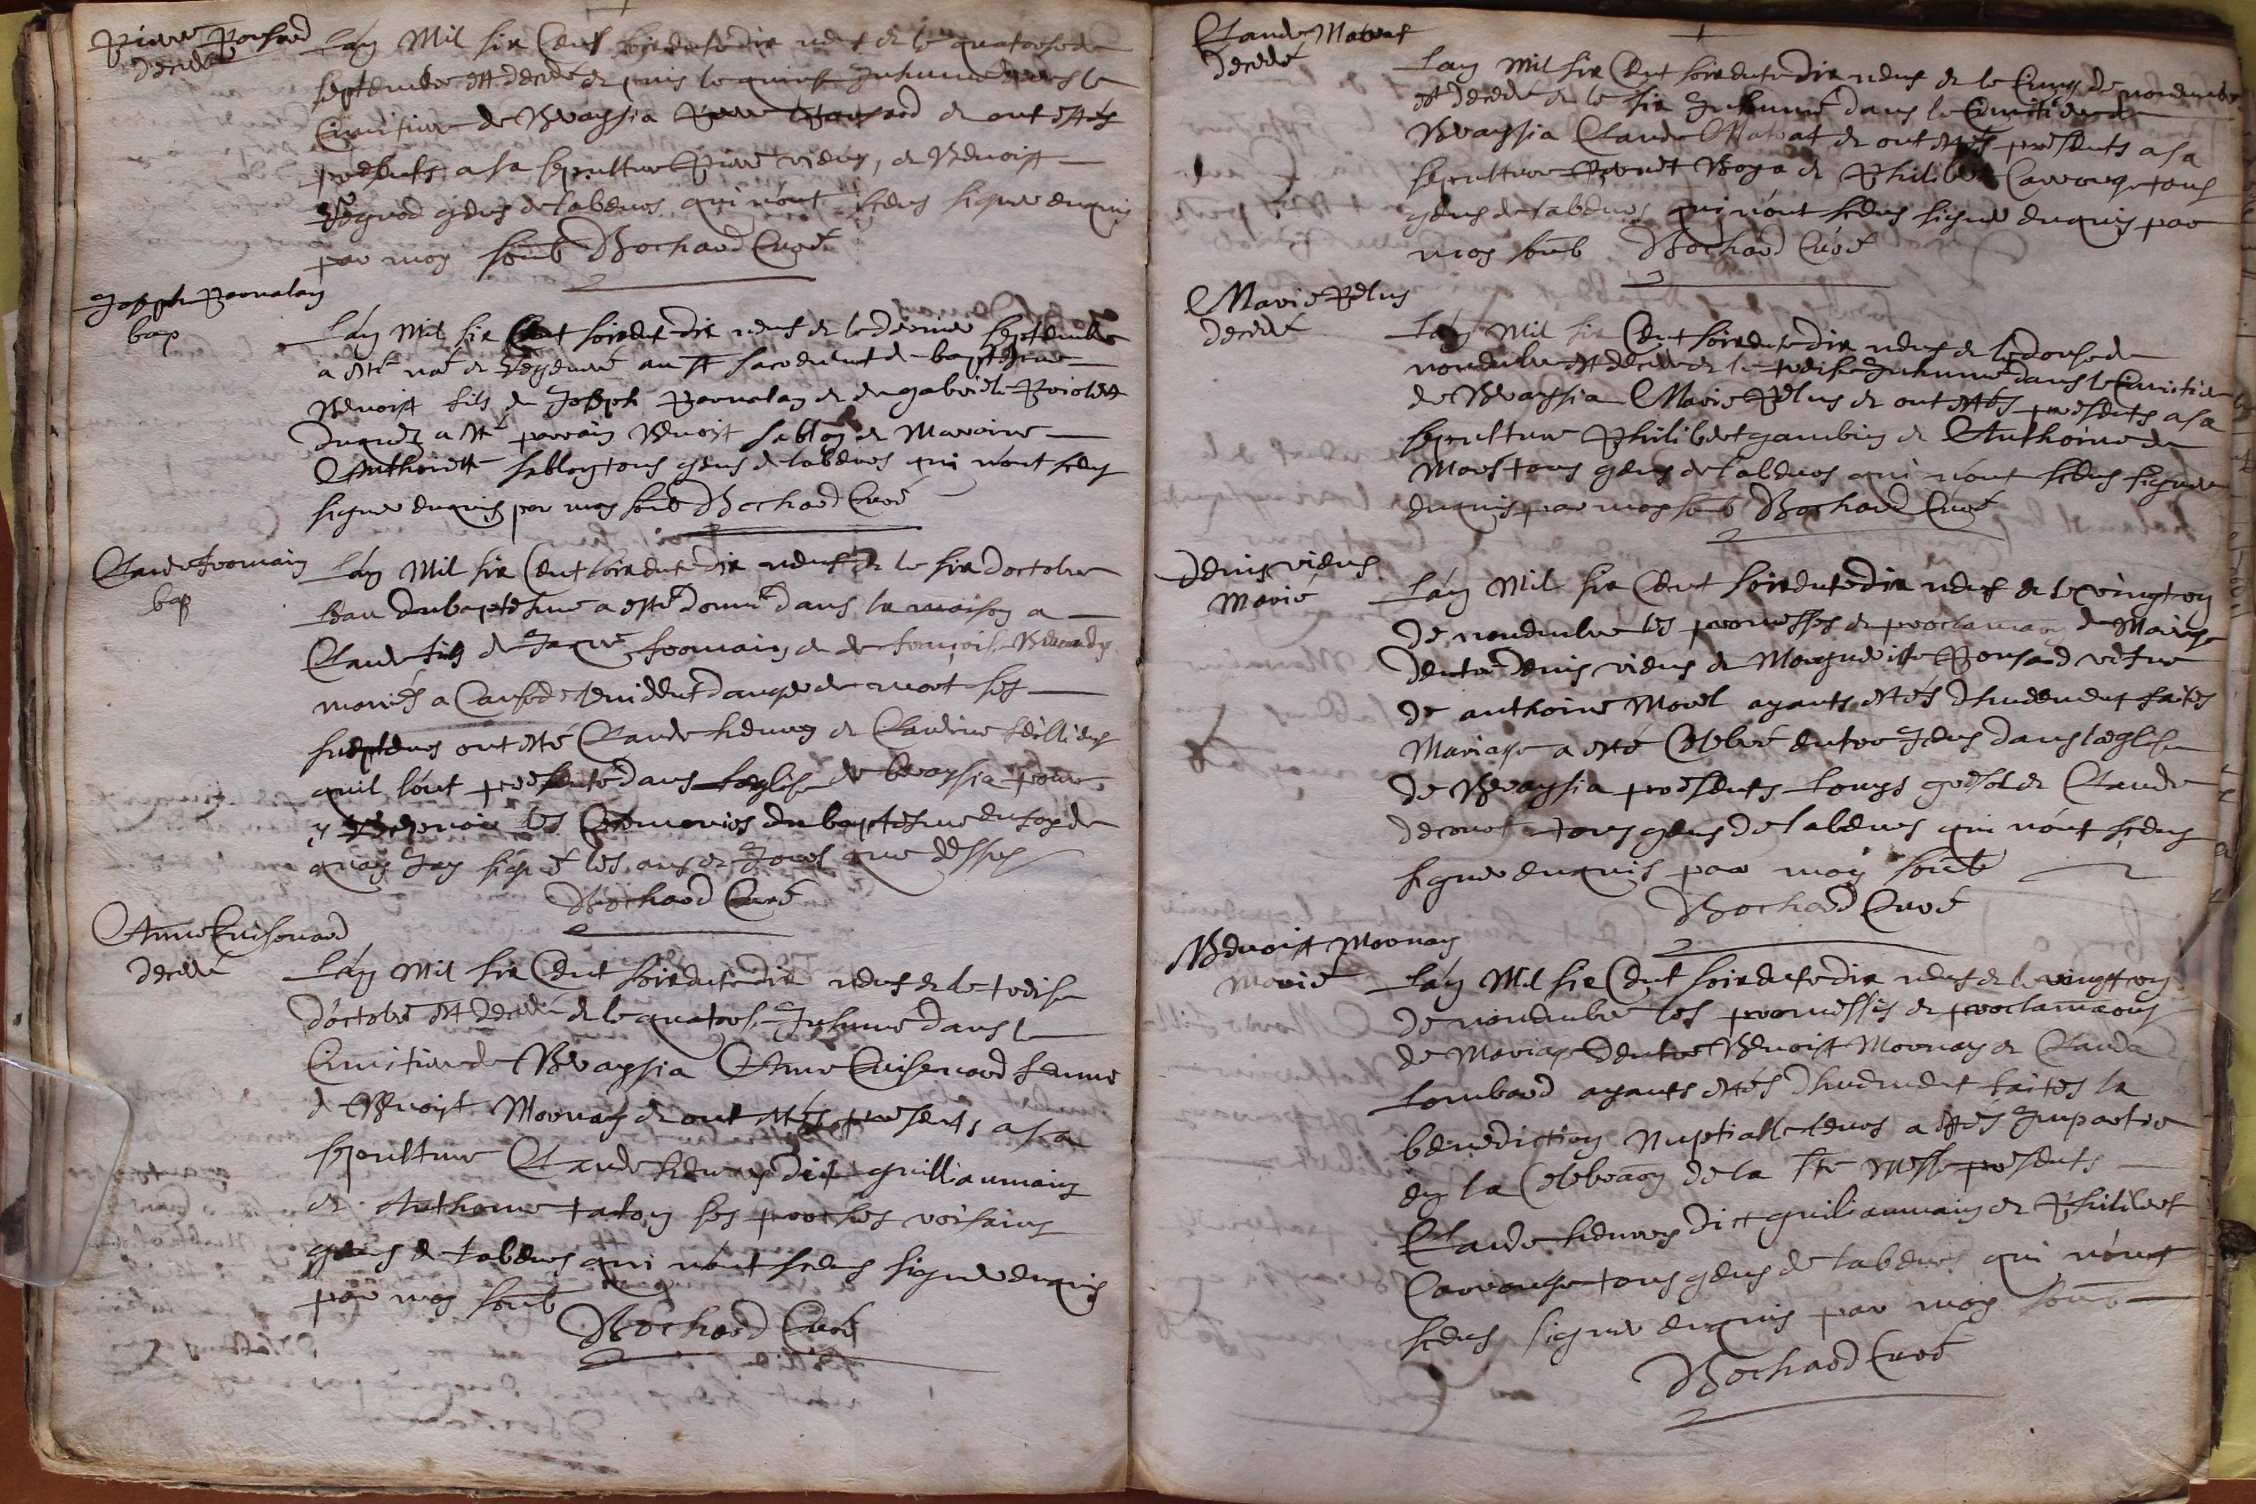 Pierre Ponsard
decedé
Lan Mil six Cent soixente dix neuf et le quatorse de
septembre est decedé et puis le quinse Inhumé dans le
Cimitiere de Breyssia Pierre Ponsard et ont estés
presents a sa sepulture Pierre vieux, et Benoist
gens de labeurs qui n'ont sceus signer enquis
par moy soub Bochard Curé
Joseph
bap
Lan Mil six Cent soixente dix neuf et le dernier septembre
a esté né et regeneré au st sacrement de baptesme
Benoist fils de Joseph et de gabriele
duquel a esté parrain Benoist sablon et Maraine
Anthoinette sablon tous gens de labeurs qui n'ont sceus
signer enquis par moy soub Bochard Curé
Claude fromain
bap
Lan Mil six Cent soixente dix neuf et le six doctobre
Leau du baptesme a esté donné dans la maison a
Claude fils de Jaques fromain et de françoise
mariés a Cause de levident danger de mort ses
susepteurs ont esté Claude heurey et Claudine
quil lont presenté dans leglise de breyssia pour
y recepvoir les Ceremonies du baptesme en foy de
quoy Jay signé les ans et Jours que dessus
Bochard Curé
Anne Cuisenard
decedé
Lan Mil six Cent soixente dix neuf et le treise
d'octobre est decedé et le quatorse Inhumé dans le
Cimitiere de Breyssia Anne Cuisenard femme
de Benoist Mornay et ont estés presents a sa
sepulture Claude heurey dit guilliaumain
et Anthoine talon ses proches voisains
gens de labeurs qui n'ont sceus signer enquis
par moy soub
Bochard Curé
Claude Matrat
decedé
Lan Mil six Cent soixente dix neuf et le Cinq de novembre
est decedé et le six Inhumé dans le Cimitiere de
Breyssia Claude Matrat et ont estés presents a sa
sepulture Boya et Philibert Carronge tous
gens de labeurs qui n'ont sceus signer enquis par
moy soub Bochard Curé
Marie Pelus
decedé
Lan Mil six Cent soixente dix neuf et le douse de
novembre est decedé et le treise Inhumé dans le Cimitiere
de Breyssia Marie Pelus et ont estés presents a sa
sepulture Philibert gambin et Anthoine de
Mors tous gens de labeurs qui n'ont sceus signer
enquis par moy soub Bochard Curé
Denis vieux
Marié
Lan Mil six Cent soixente dix neuf et le vingt
de novembre les promesses et proclamaon de Mariage
dentre denis vieux et Marguerite Ponsard vefve
de anthoine Morel ayants estés dhuement faites
Mariage a esté Celebré entre Ieux dans leglise
de Breyssia presents Louys et Claude
decourt tous gens de labeurs qui n'ont sceus
signer enquis par moy soub
Bochard Curé
Benoist Mornay
Marié
Lan Mil six Cent soixente dix neuf et le vingt
de novembre les promesses et proclamaons
de Mariage dentre Benoist Mornay et Clauda
Lombard ayants estés dhuement faites la
benediction Nuptialle leurs a estés Impartie
en la Celebraon de la ste Messe presents
Claude heurey dict guiliaumain et Philibert
Carronge tous gens de labeurs qui n'ont
sceus signer enquis par moy soub
Bochard Curé